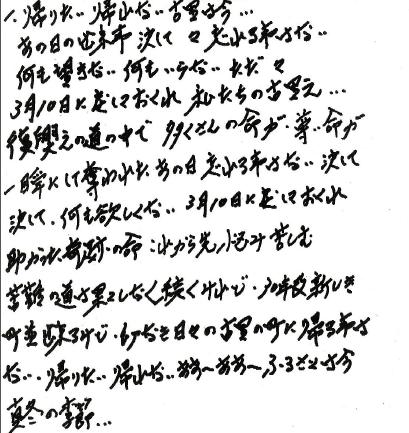 1. 帰りたい 帰れない 古里は今…
あの日の出来事 決して々 忘れる事はない
何も望まない 何もいらない ただ々
3月10日に戻しておくれ 私たちの古里え…
復興えの道の中で 多くさんの命が・尊い命が
一瞬にして奪われた あの日忘れる事はない 決して
決して・何も欲しくない 3月10日に戻しておくれ
助かった奇跡の命 これから先 悩み苦しむ
苦難の道は果てしなく続くけれど・30年後新しき
町並出来るけど・もうなき日々の古里の町に帰る事は
ない・帰りたい 帰れない ああ～ああ～ふるさとは今
真冬の季節…